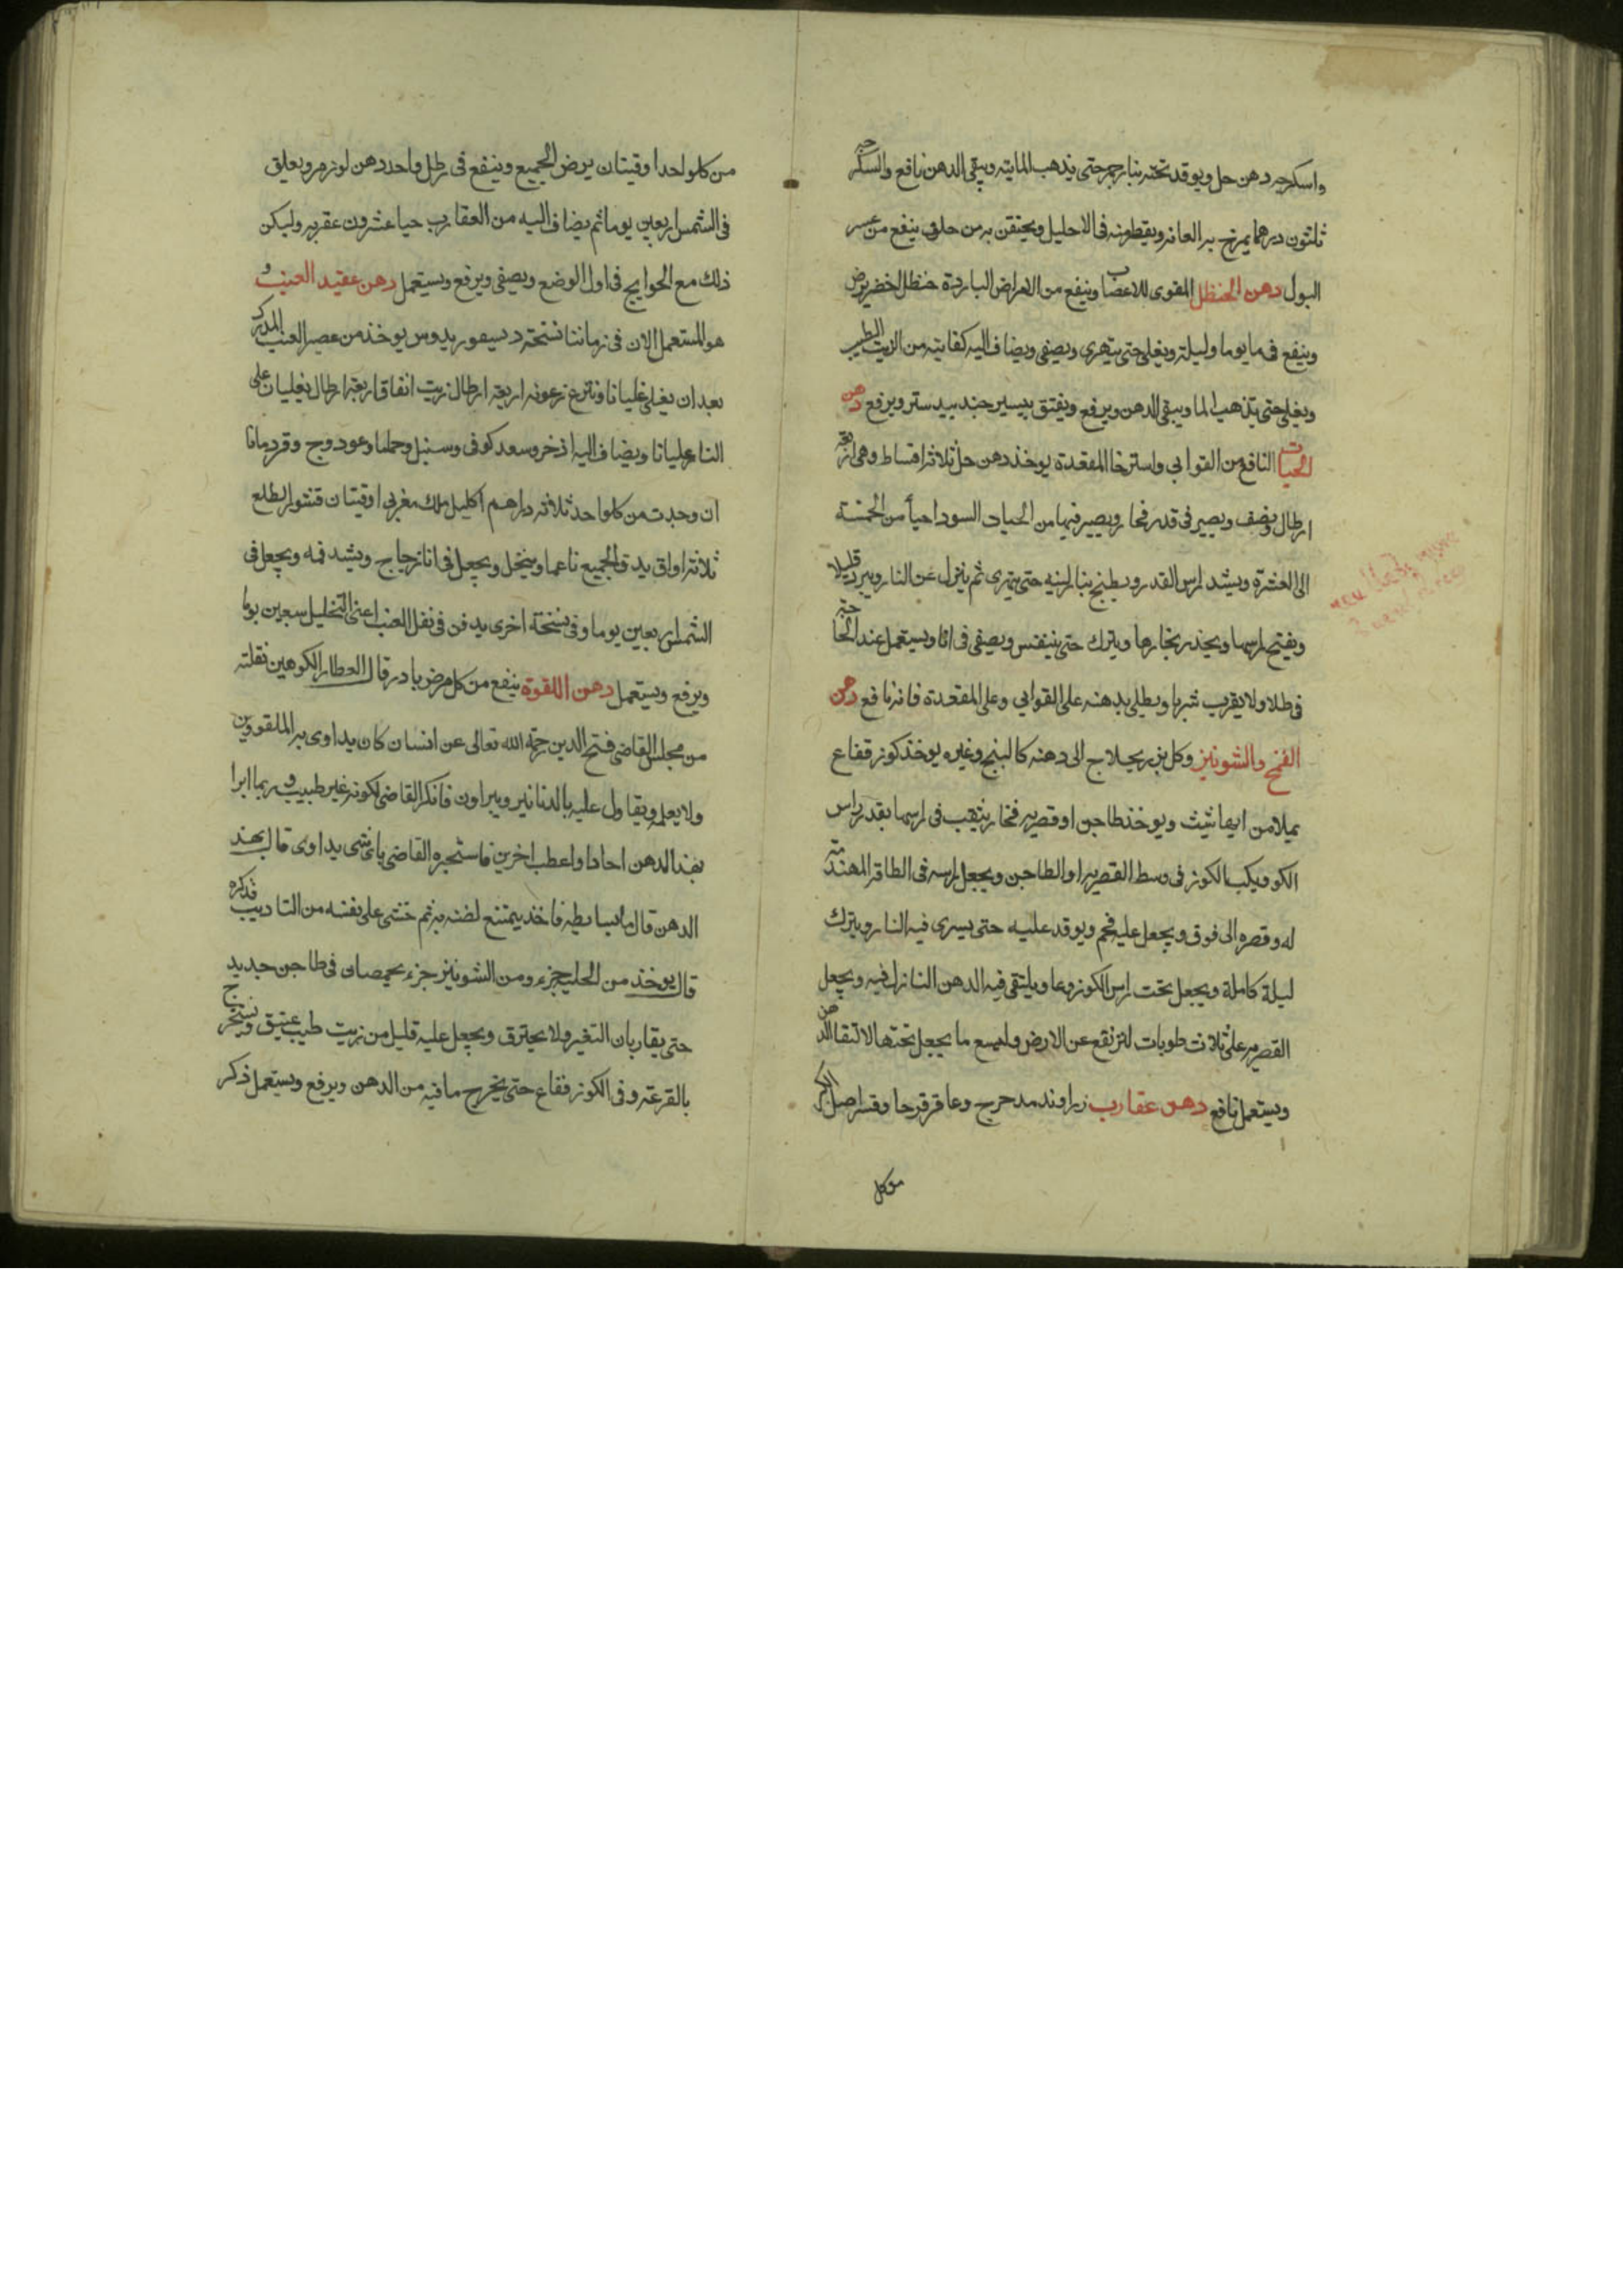 واسكرجه دهن حل ويوقد تحته بنار جمر حتى يذهب المايته ويبقى الدهن نافع والسكرجه
ثلثون درهما يمرخ به العانه ويقطر منه في الاحليل ويحتقن به من حلق ينفع من عسر
البول دهن الحنظل المقوى للاعصاب وينفع من الامراض الباردة حنظل اخضر يرض
وينقع في ما يوما وليلة ويغلى حتى يتهرى ويصفى ويضاف اليه كفايته من الزيت الطيب
ويغلى حتى يذهب الما ويبقى الدهن ويرفع ويفتق بيسير جند بيدستر ويرفع دهن
الحيات النافع من القوابي واسترخا المقعدة يوخذ دهن حل ثلاثة اقساط وهى اربعة
ارطال ونصف ويصير في قدر فخار ويصير فيها من الحيات السود احيا من الخمسة
الى العشرة ويشد راس القدر ويطبخ بنار لينه حتى يتهرى ثم ينزل عن النار ويبرد قليلا
ويفتح راسها ويحذر بخارها ويترك حتى يتنفس ويصفى في انا ويستعمل عند الحاجة
في طلا ولا يقرب شربا ويطلى بدهنه على القوابي وعلى المقعدة فانه نافع دهن
القمح والشونيز وكل بزر يحتاج الى دهنه كالبنج وغيره يوخذ كوز فقاع
يملا من ايها شيت ويوخذ طاجن او قصريه فخار يثقب في راسها بقدر راس
الكوز ويكب الكوز في وسط القصريه او الطاجن ويجعل راسه في الطاقة المهندمة
له وقصره الى فوق ويجعل عليه فحم ويوقد عليه حتى يسرى فيه النار ويترك
ليلة كاملة ويجعل تحت راس الكوز وعا ويلتقى فيه الدهن النازل فيه ويجعل
القصريه على ثلاث طوبات لترتفع عن الارض وليسع ما يجعل تحتها لالتقا الدهن
ويستعمل نافع دهن عقارب زراوند مدحرج وعاقر قرحا وقشر اصل الكبر
من كل
من كل واحد اوقيتان يرض الجميع وينقع في رطل واحد دهن لوز مر ويعلق
في الشمس اربعين يوما ثم يضاف اليه من العقارب حيا عشرون عقربه وليكن
ذلك مع الحوايج في اول الوضع ويصفى ويرفع ويستعمل دهن عقيد العنب و
هو المستعمل الان في زماننا نسخة ديسقوريدوس يوخذ من عصير العنب المدرك
بعد ان يغلى غليانا وتنزع رغوته اربعة ارطال زيت انفاق اربعة ارطال يغليان على
النار غليانا ويضاف اليه اذخر وسعد كوفى وسنبل وحماما وعود وج وقردمانا
ان وجدت من كل واحد ثلاثة دراهم اكليل ملك مغربى اوقيتان قشور الطلع
ثلاثة اواق يدق الجميع ناعما وينخل ويجعل في انا زجاج ويشد فمه ويجعل في
الشمس اربعين يوما وفي نسخة اخرى يدفن في ثفل العنب اعنى التخليل سبعين يوما
ويرفع ويستعمل دهن اللقوة ينفع من كل مرض بارد قال العطار الكوهين نقلته
من مجلس القاضى فتح الدين رحمه الله تعالى عن انسان كان يداوى به الملقووين
ولا يعلمه ويقاول عليه بالدنانير ويبراون فانكر القاضى لكونه غير طبيب وربما ابرا
بهذا الدهن احادا واعطب اخرين فاستخبره القاضى باى شى يداوى قال بهذ
الدهن قال ما بسايطه فاخذ يمتنع لضنه به ثم خشى على نفسه من التاديب فذكره
قال يوخذ من الحلبه جزء ومن الشونيز جزء يحمصان في طاجن جديد
حتى يقاربان التغير ولا يحترق ويجعل عليه قليل من زيت طيب عتيق ويستخرج
بالقرعة وفي الكوز فقاع حتى يخرج ما فيه من الدهن ويرفع ويستعمل ذكر